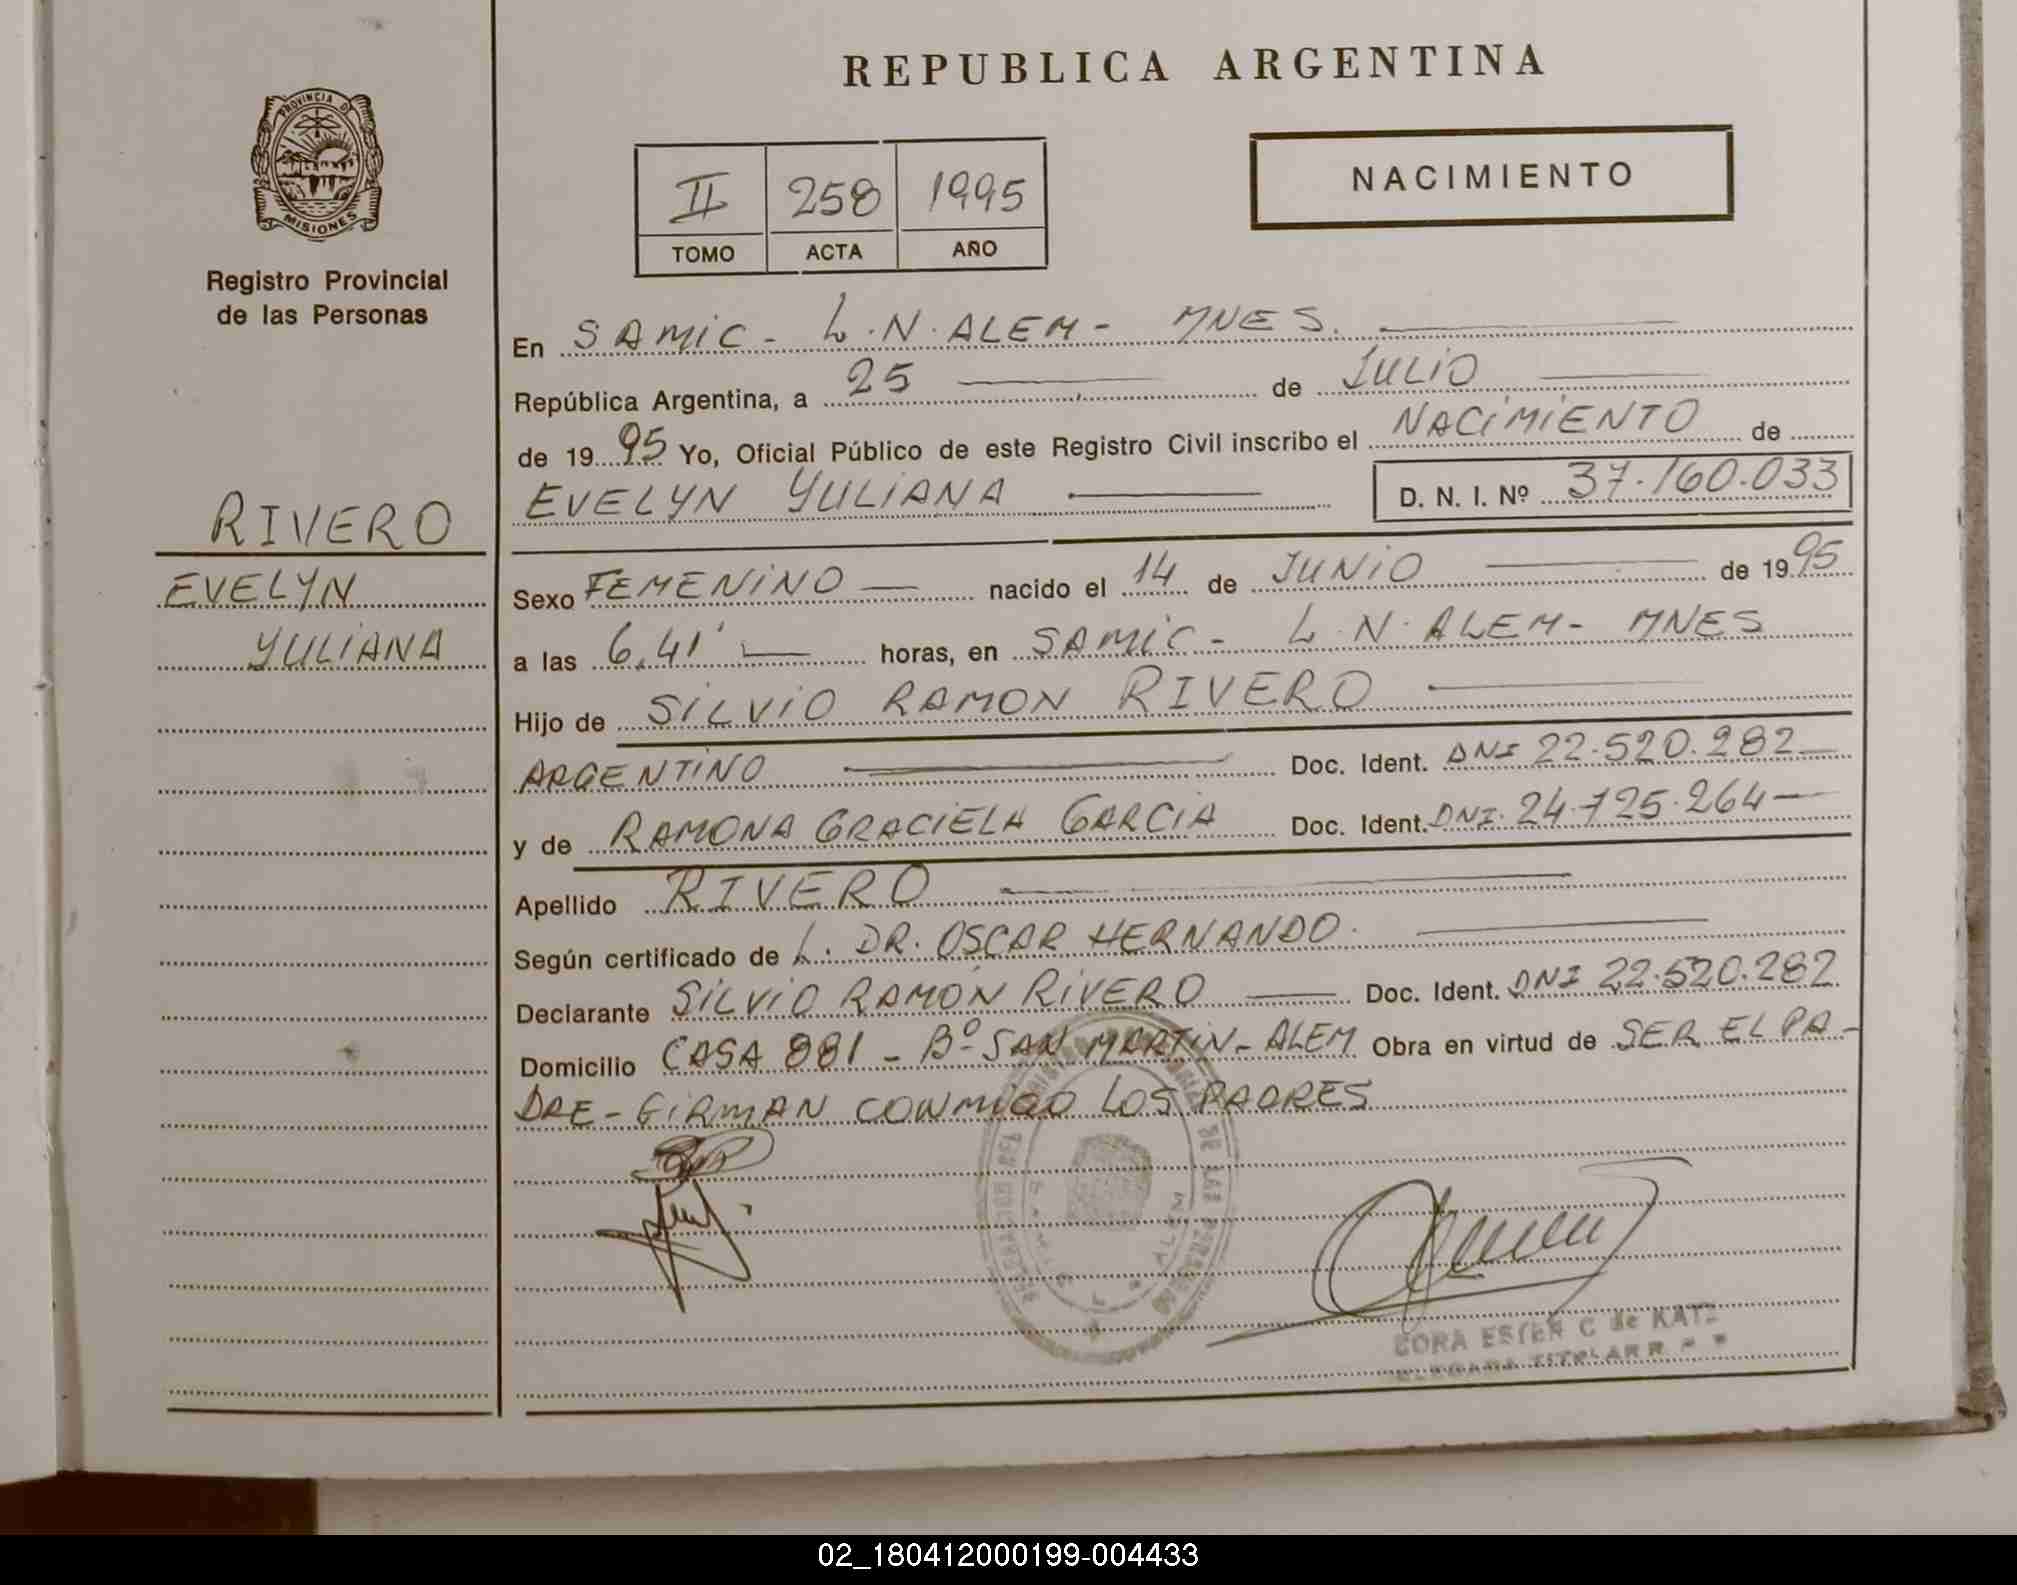 REPUBLICA ARGENTINA
PROVINCIA DE
MISIONES
Registro Provincial
de las Personas
II 258 1995
TOMO ACTA AÑO
NACIMIENTO
En SAMIC - L.N. ALEM - MNES.
República Argentina, a 25 de JULIO
de 1995 Yo, Oficial Público de este Registro Civil inscribo el NACIMIENTO de
EVELYN YULIANA D. N. I. Nº 37.160.033
RIVERO
EVELYN
YULIANA
Sexo FEMENINO nacido el 14 de JUNIO de 1995
a las 6,41' horas, en SAMIC - L.N. ALEM - MNES
Hijo de SILVIO RAMON RIVERO
ARGENTINO Doc. Ident. DNI 22.520.282
y de RAMONA GRACIELA GARCIA Doc. Ident. DNI. 24.725.264
Apellido RIVERO
Según certificado de L. DR. OSCAR HERNANDO.
Declarante SILVIO RAMÓN RIVERO Doc. Ident. DNI 22.520.282
Domicilio CASA 881 - Bº SAN MARTIN - ALEM Obra en virtud de SER EL PA-
DRE - GIRMAN CONMIGO LOS PADRES
DE LAS
ALEM
ESTER C de KATZ
TITULAR
02_180412000199-004433